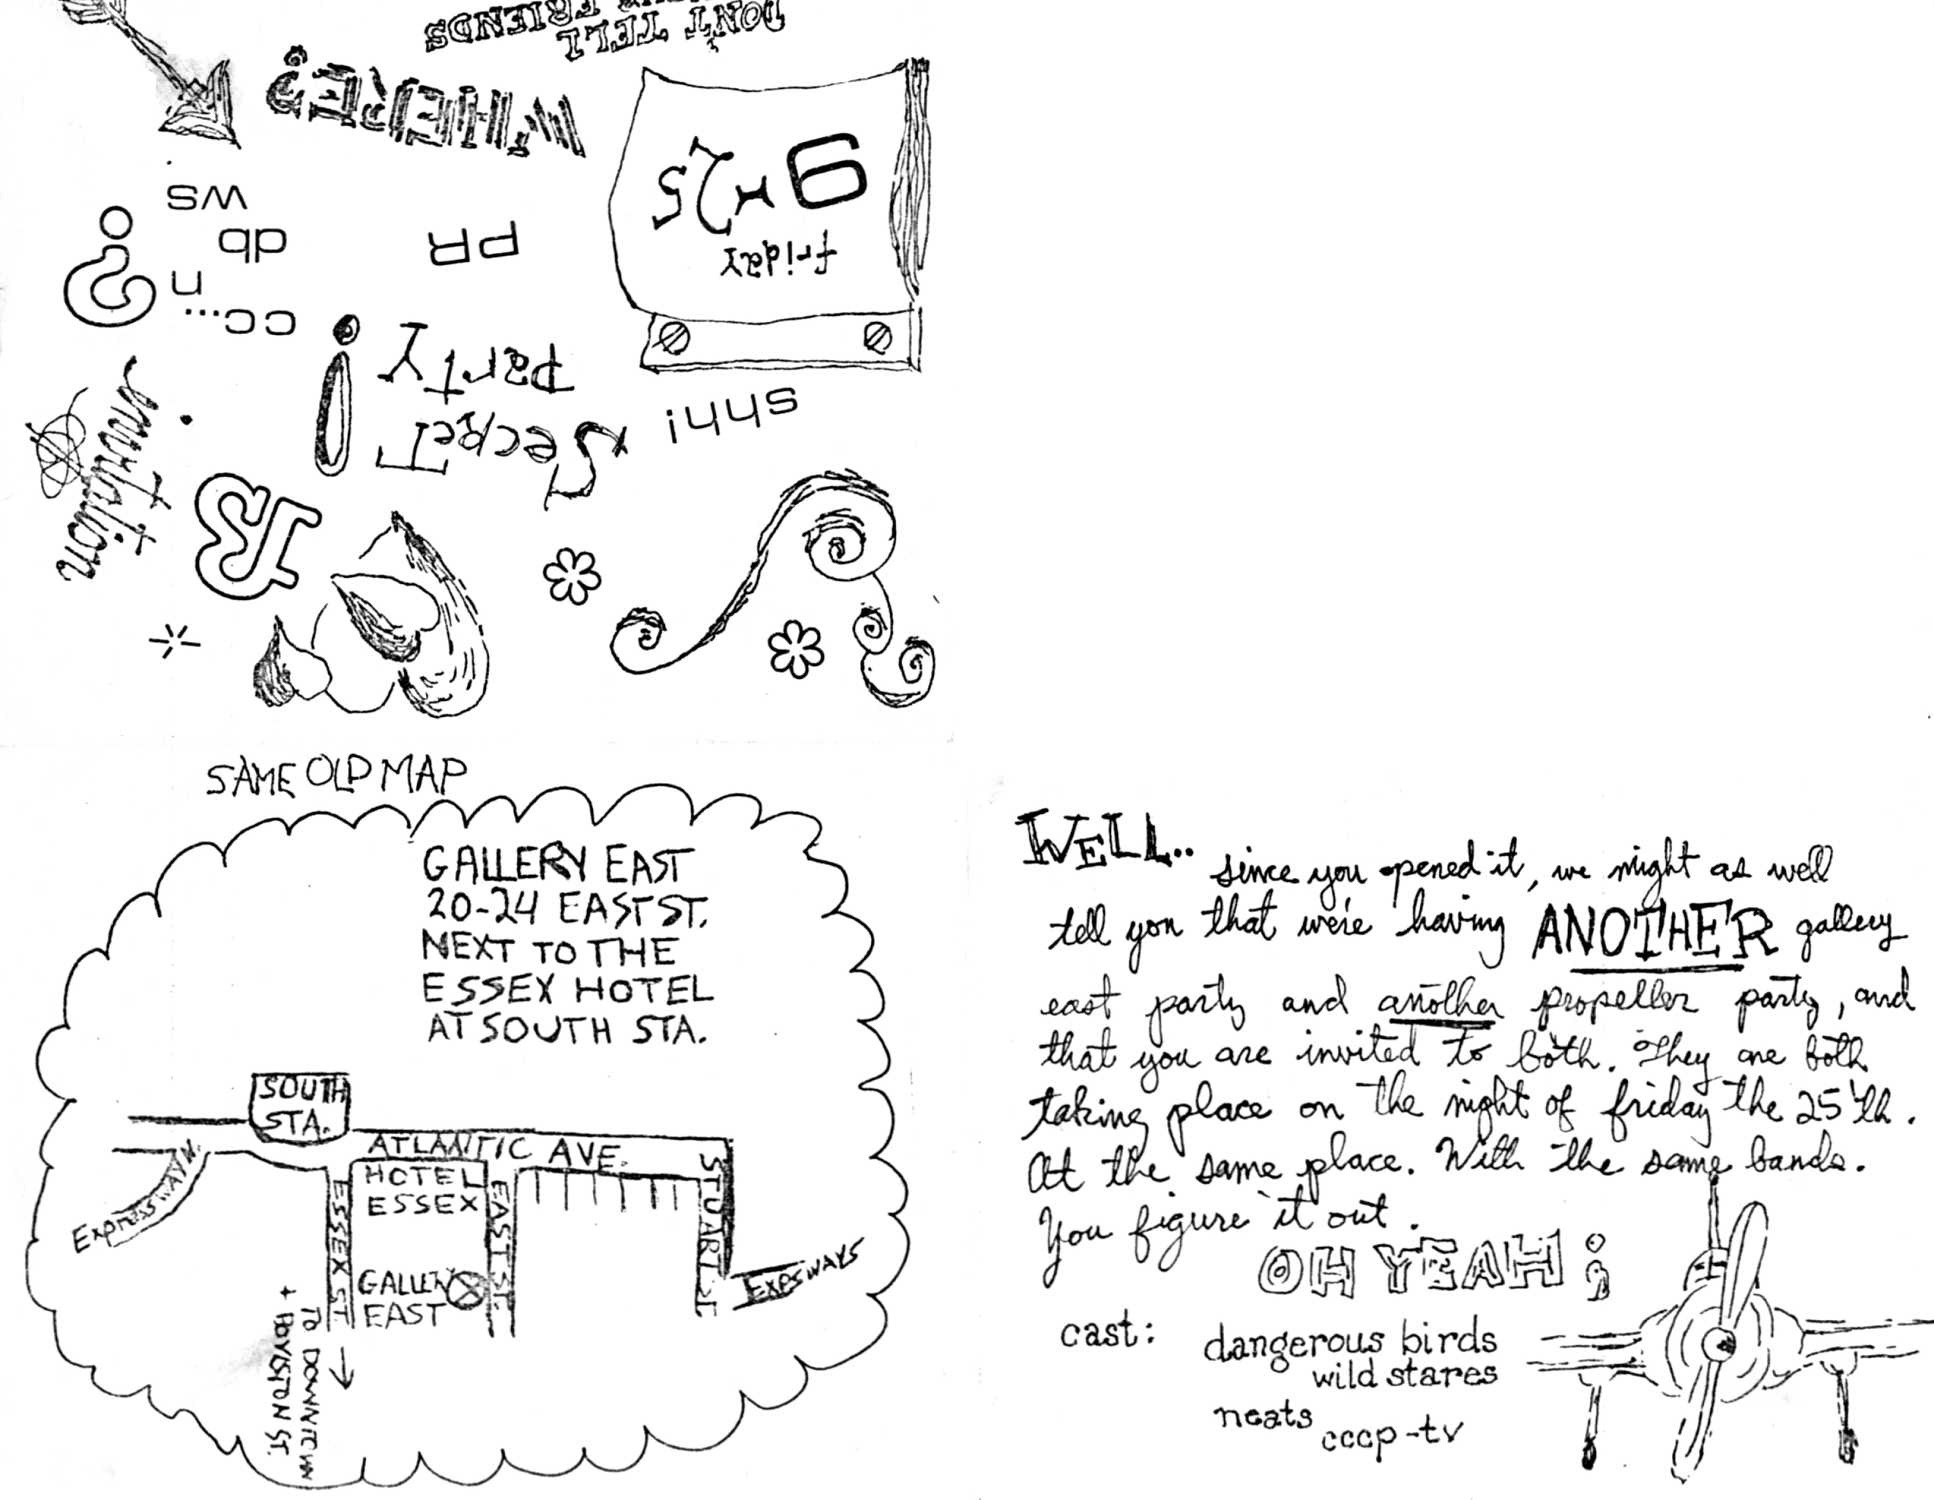 invitation
B
shh!
Secret
party!
cc...
n
db
ws
?
PR
friday
6-25
WHERE?
DON'T TELL
FRIENDS
SAME OLD MAP
GALLERY EAST
20-24 EAST ST.
NEXT TO THE
ESSEX HOTEL
AT SOUTH STA.
SOUTH
STA.
ATLANTIC AVE.
EXPRESSWAY
HOTEL
ESSEX
ESSEX ST.
EAST ST.
STUART ST
EXPSWAYS
GALLERY
EAST
TO DOWNTOWN
+ BOYLSTON ST.
WELL.. since you opened it, we might as well
tell you that we're having ANOTHER gallery
east party and another propeller party, and
that you are invited to both. They are both
taking place on the night of friday the 25'th.
At the same place. With the same bands.
You figure it out.
OH YEAH
cast: dangerous birds
wild stares
neats
cccp-tv